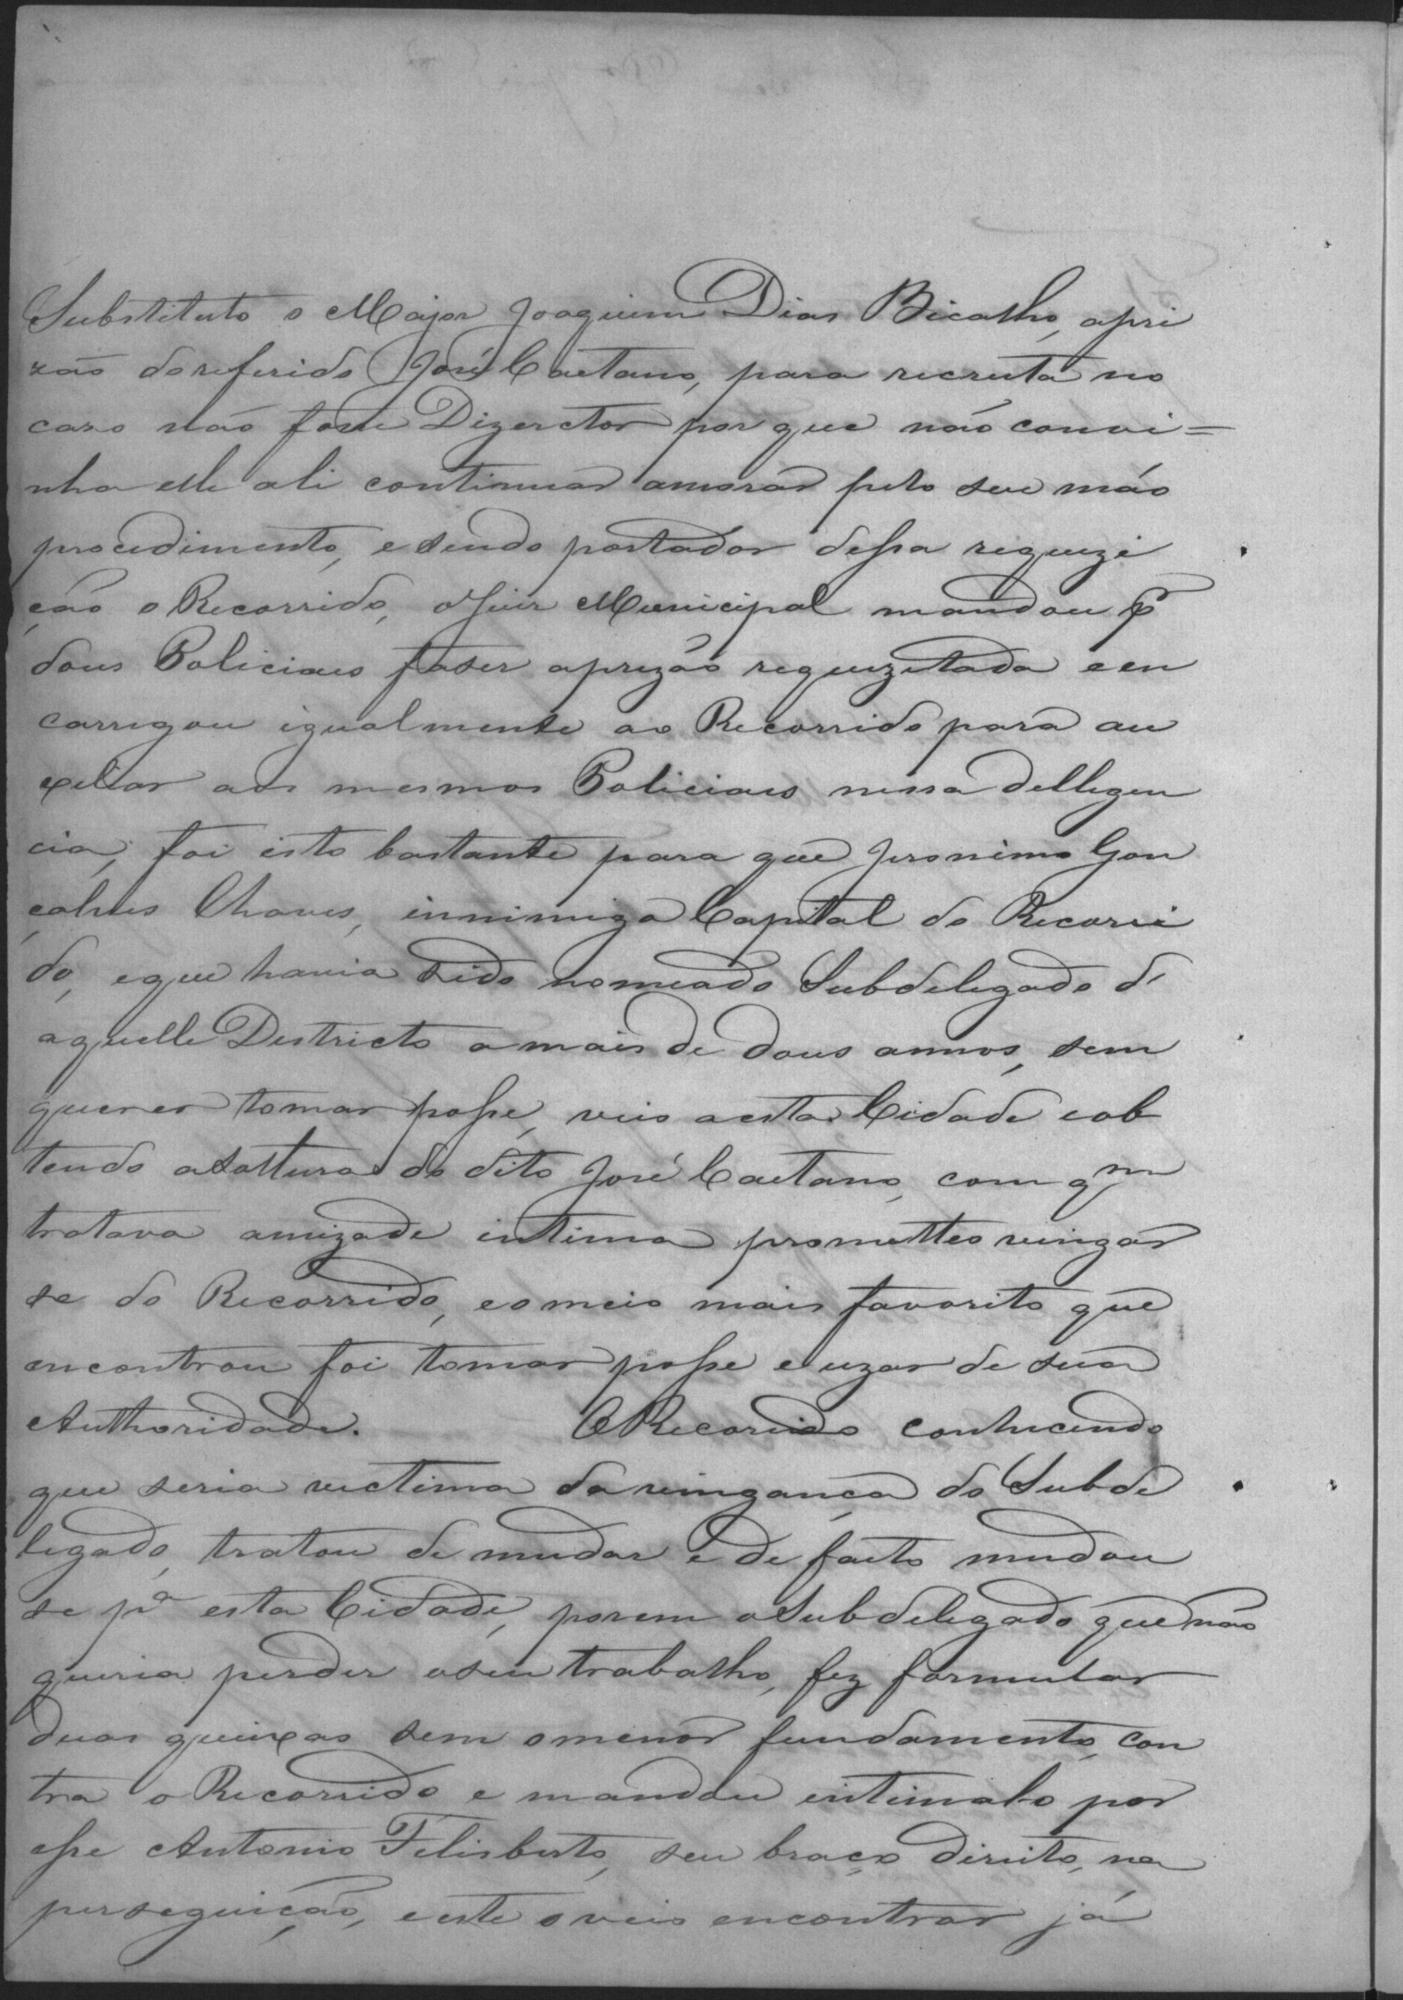 Substituto o Major Joaquim Dias Bicalho, apri
zão doreferido José Caetano, para recruta no
cazo não fosse Dizerctor por que não convi=
nha elle ali continuar amorar pelo seu máo
procedimento, e sendo portador dessa requizi
ção o Recorrido, o Juiz Municipal mandou pr
dous Policiaes faser aprizão requizitada e en
carregou igualmente ao Recorrido para au
xiliar aos mesmos Policiaes nessa delligen
cia, foi isto bastante para que Jeronimo Gon
çalves Chaves, innimigo Capital do Recorri
do, eque havia sido nomeado Subdelegado d'
aquelle Districto amais de dous annos, sem
querer tomar posse, veio aesta Cidade eob
tendo asoltura do dito José Caetano, com qm
tratava amizade intima prometteo vingar
se do Recorrido, eomeio mais favorito que
encontrou foi tomar posse e uzar de sua
Authoridade. O Recorrido conhecendo
que seria victima da vingança do Subde
legado, tratou de mudar e de facto mudou
se pa esta Cidade, porem o Subdelegado que não
queria perder oseu trabalho, fez formular
duas queixas sem omenor fundamento, con
tra o Recorrido e mandou intimalo por
esse Antonio Felisberto, seu braço direito, na
perseguição, e este o veio encontrar já